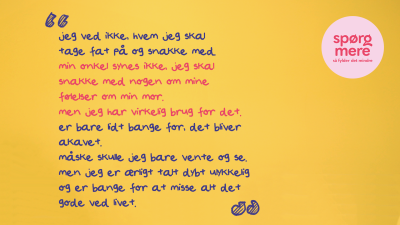 jeg ved ikke, hvem jeg skal
tage fat på og snakke med.
min onkel synes ikke, jeg skal
snakke med nogen om mine
følelser om min mor.
men jeg har virkelig brug for det.
er bare lidt bange for, det bliver
akavet.
måske skulle jeg bare vente og se,
men jeg er ærligt talt dybt ulykkelig
og er bange for at misse alt det
gode ved livet.
spørg
mere
så fylder det mindre